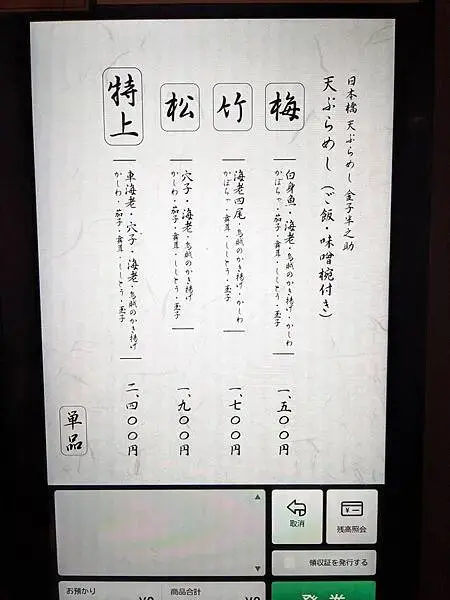 日本橋 天ぷらめし 金子半之助
天ぷらめし(ご飯・味噌椀付き)
梅
白身魚・海老・烏賊のかき揚げ・かしわ
かぼちゃ・茄子・舞茸・ししとう・玉子
一、五〇〇円
竹
海老四尾・烏賊のかき揚げ・かしわ
かぼちゃ・舞茸・ししとう・玉子
一、七〇〇円
松
穴子・海老・烏賊のかき揚げ
かしわ・茄子・舞茸・ししとう・玉子
一、九〇〇円
特上
車海老・穴子・海老・烏賊のかき揚げ
かしわ・茄子・舞茸・ししとう・玉子
二、四〇〇円
単品
取消
残高照会
領収証を発行する
お預かり
¥0
商品合計
¥0
発券